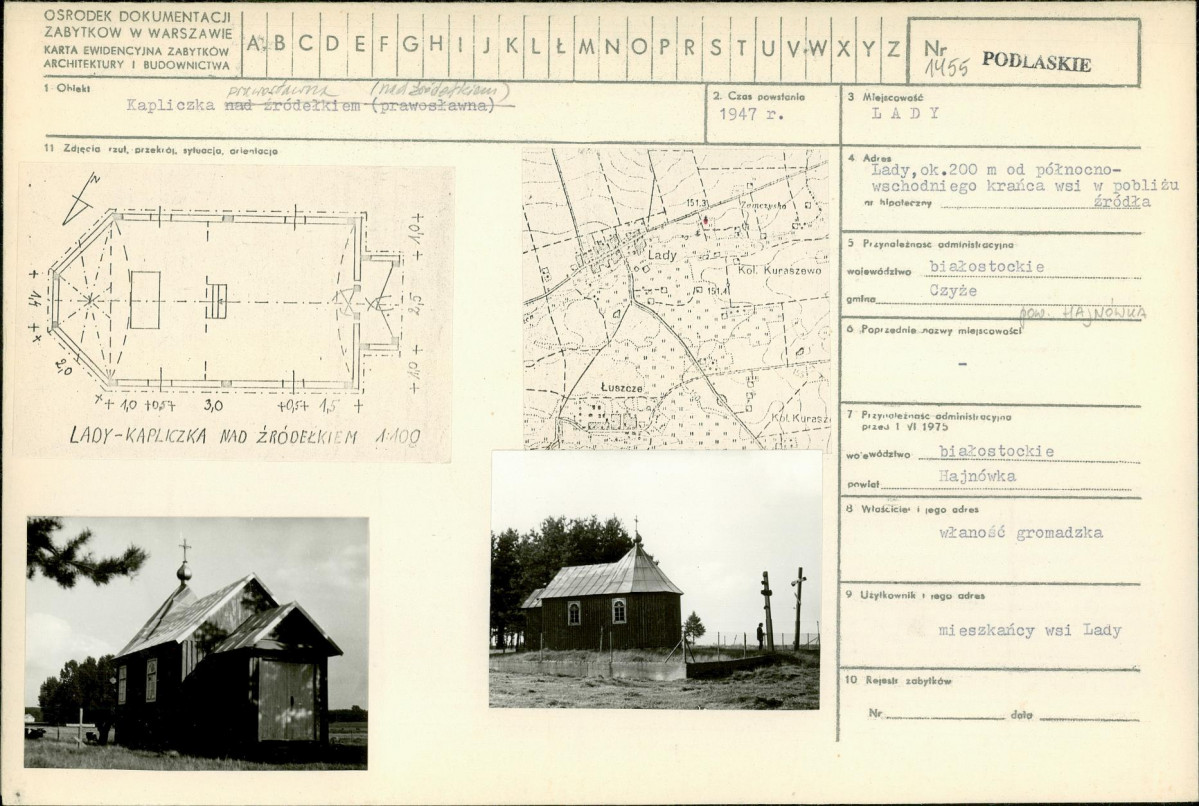 OŚRODEK DOKUMENTACJI
ZABYTKÓW W WARSZAWIE
KARTA EWIDENCYJNA ZABYTKÓW
ARCHITEKTURY I BUDOWNICTWA
A B C D E F G H I J K L Ł M N O P R S T U V W X Y Z
Nr
1455
PODLASKIE
1 Obiekt
prawosławna (nad źródełkiem)
Kapliczka nad źródełkiem (prawosławna)
2. Czas powstania
1947 r.
3 Miejscowość
LADY
11 Zdjęcia rzut, przekrój, sytuacja, orientacja
N
1,4
2,0
1,0
0,57
3,0
0,57
1,5
1,0
2,5
1,0
LADY-KAPLICZKA NAD ŹRÓDEŁKIEM 1:100
151.3
Zemczysko
Lady
Kol. Kuraszewo
151.4
Łuszcze
Kol. Kurasz
4 Adres
Lady, ok.200 m od północno-
wschodniego krańca wsi w pobliżu
źródła
nr hipoteczny
5 Przynależność administracyjna
województwo białostockie
gmina Czyże
pow. HAJNÓWKA
6 Poprzednie nazwy miejscowości
-
7 Przynależność administracyjna
przed 1 VI 1975
województwo białostockie
powiat Hajnówka
8 Właściciel i jego adres
właność gromadzka
9 Użytkownik i jego adres
mieszkańcy wsi Lady
10 Rejestr zabytków
Nr data